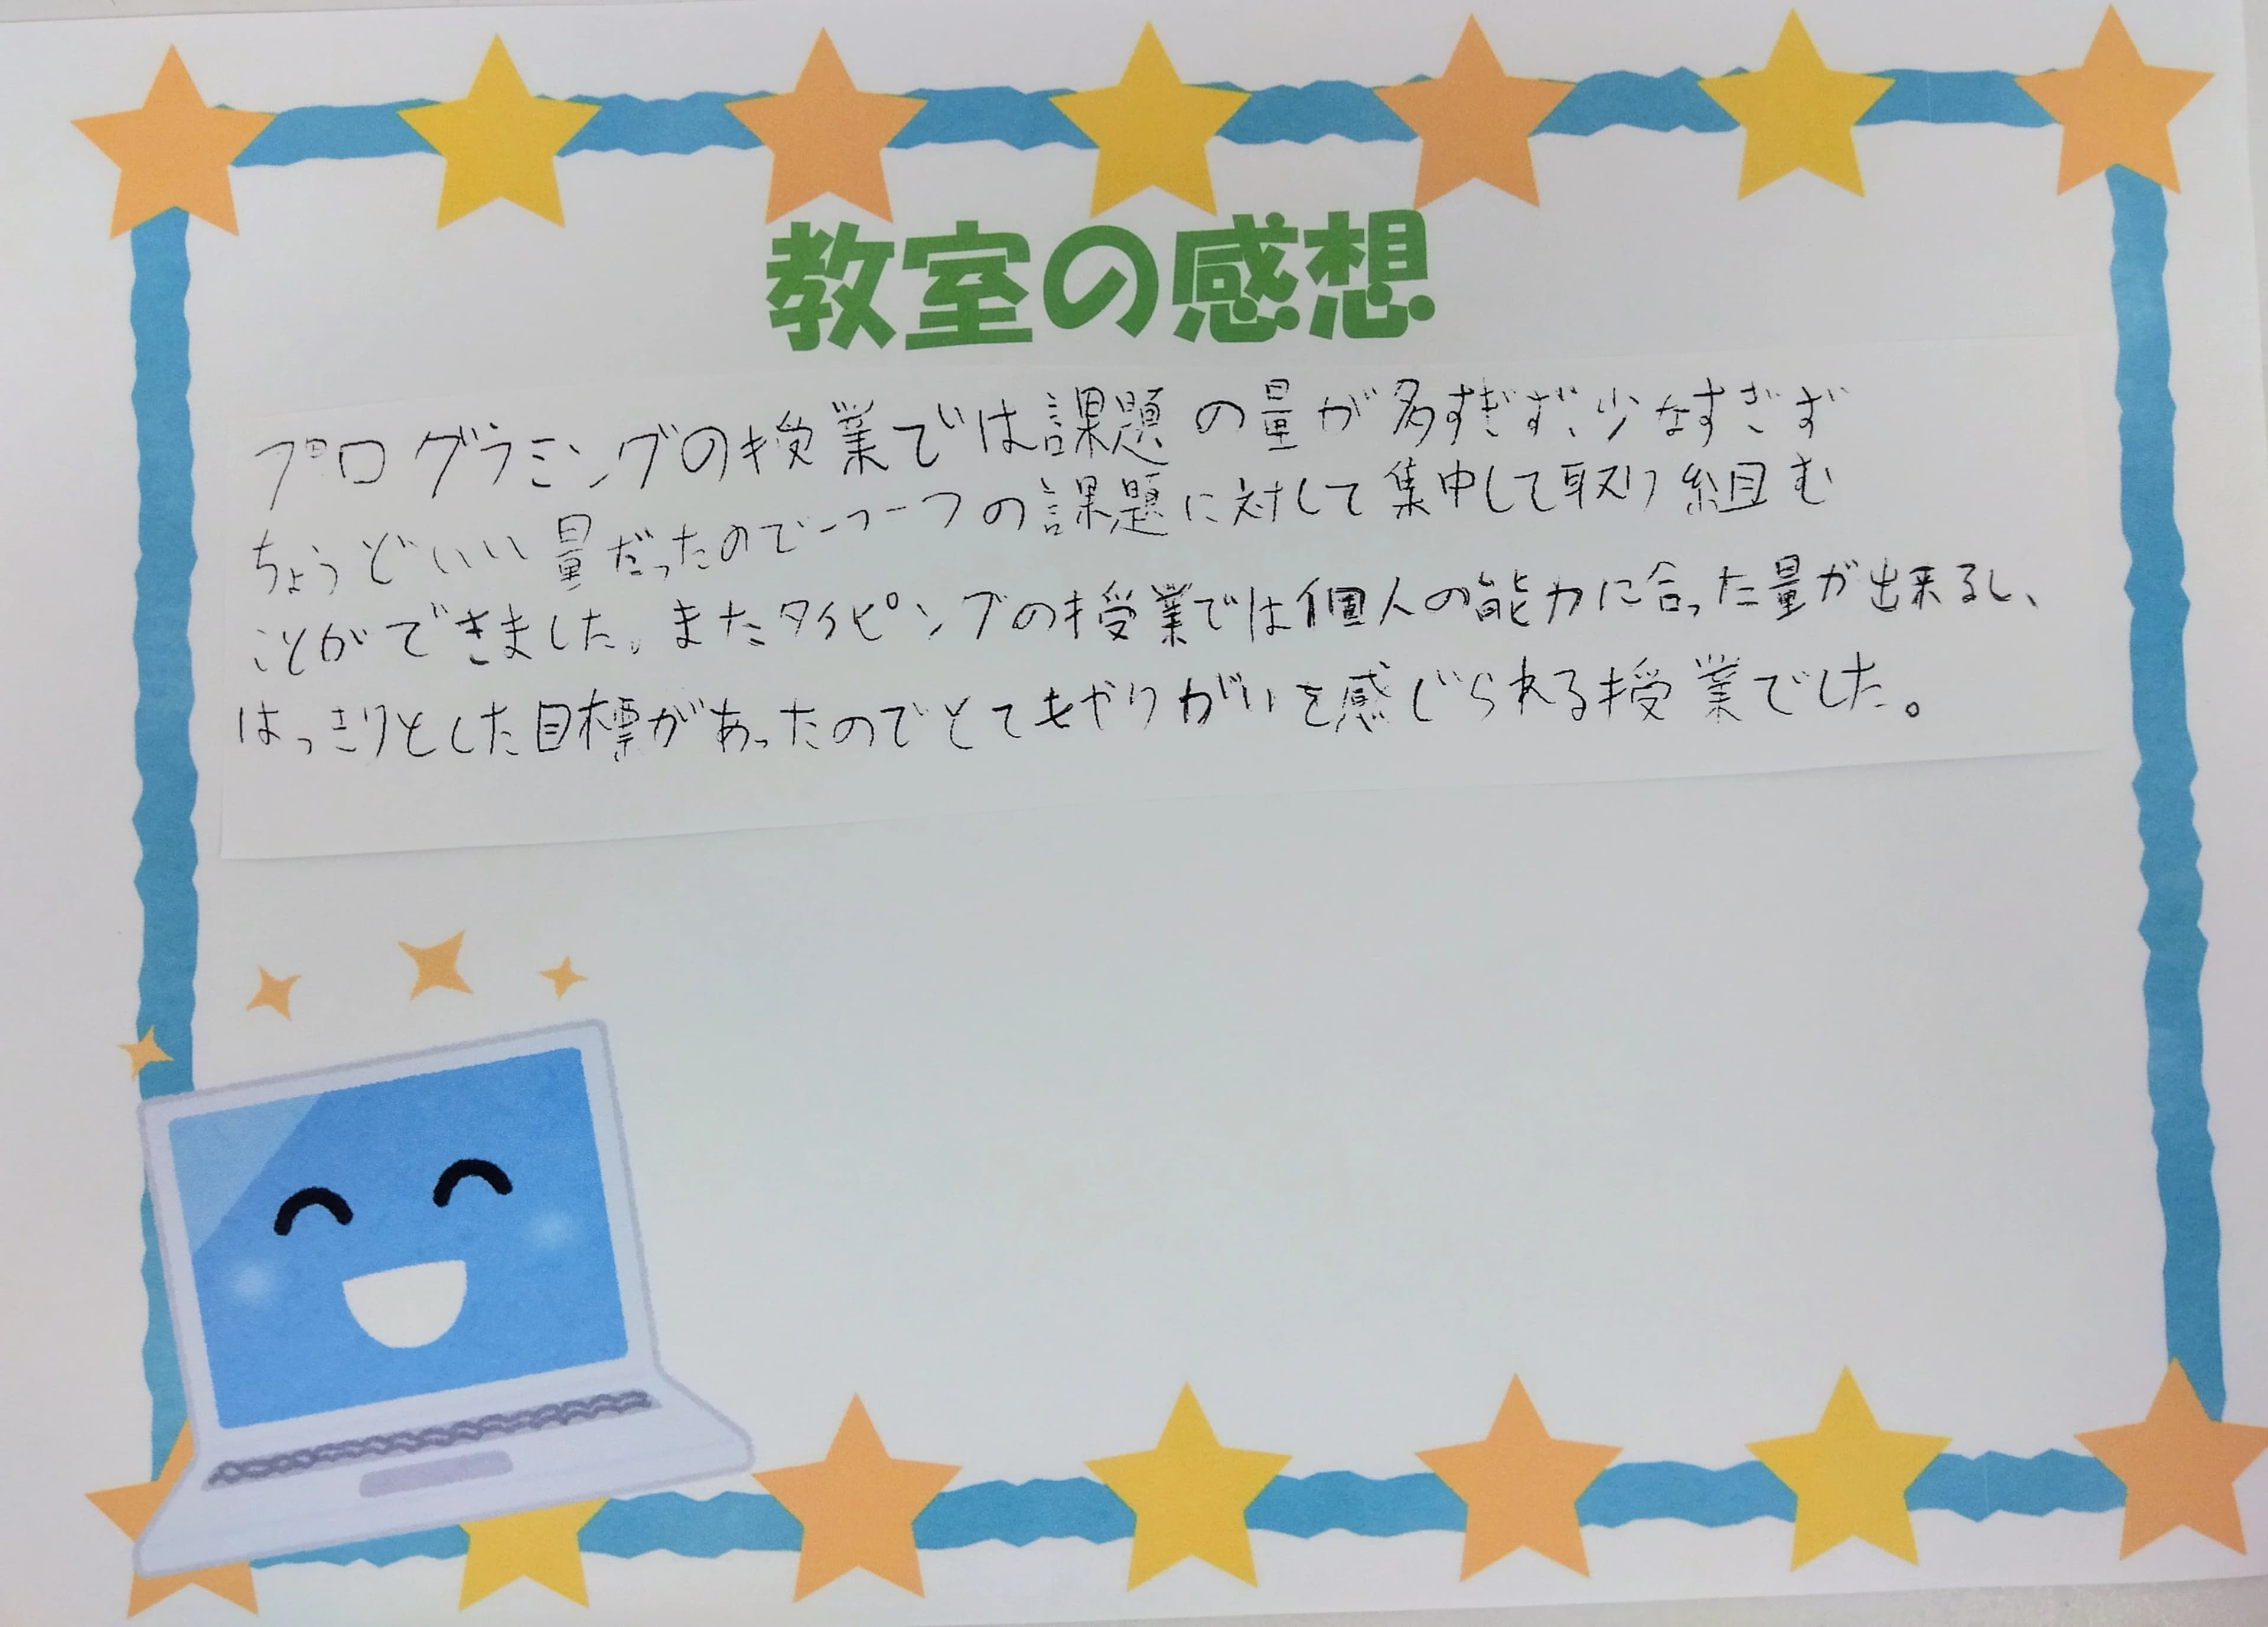 教室の感想
プログラミングの授業では課題の量が多すぎず、少なすぎず
ちょうどいい量だったので一つ一つの課題に対して集中して取り組む
ことができました。またタイピングの授業では個人の能力に合った量が出来るし、
はっきりとした目標があったのでとてもやりがいを感じられる授業でした。